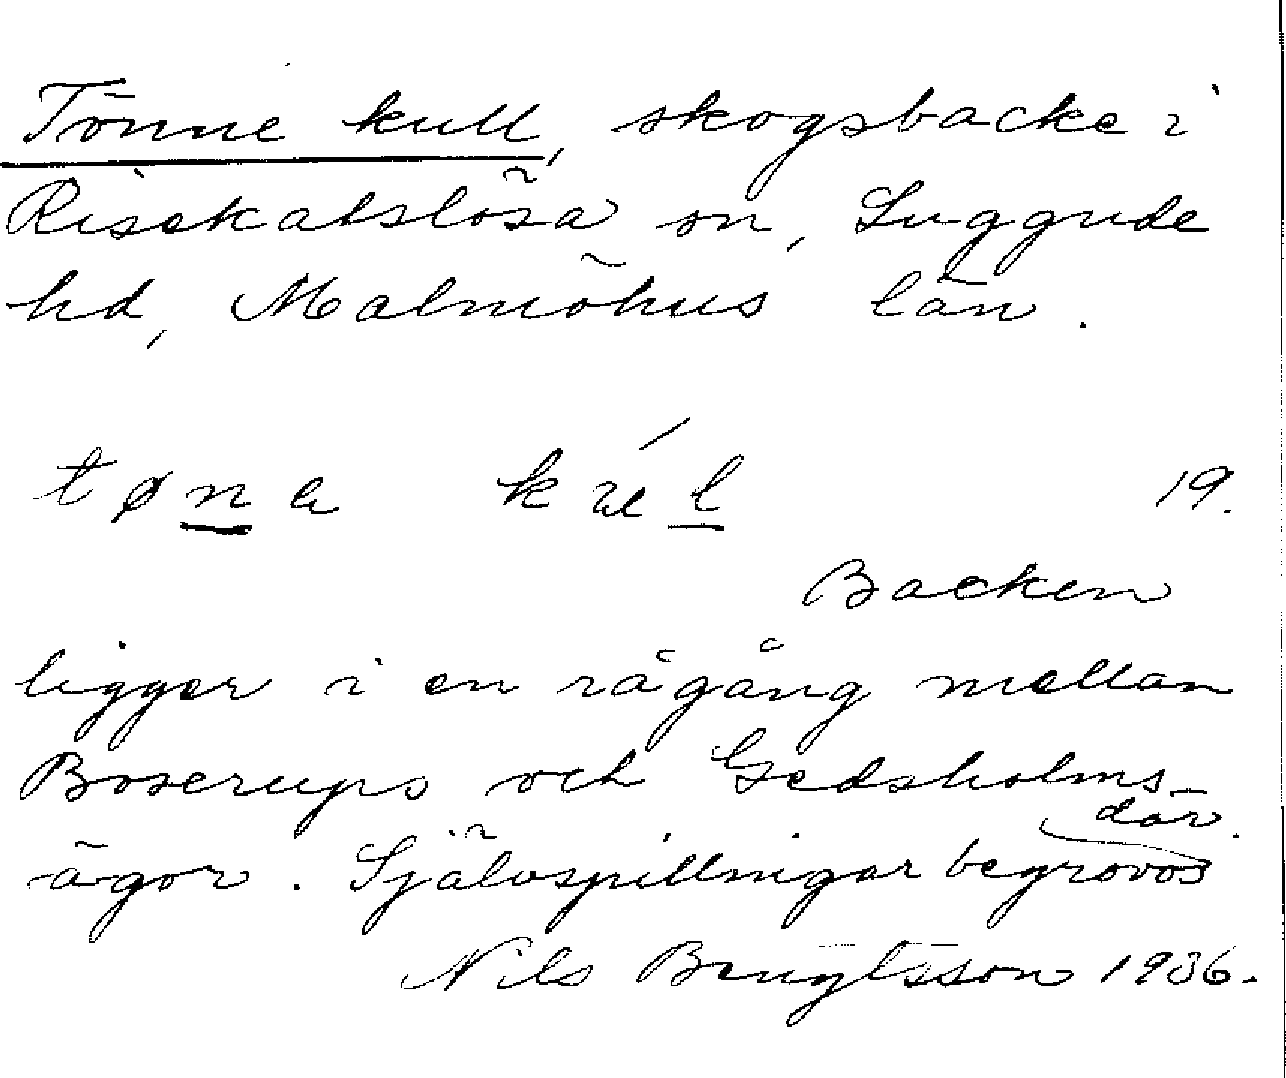 Tönne kull, skogsbacke i
Risekatslösa sn, Luggude
hd, Malmöhus län.
tøna kul 19.
Backen
ligger i en rågång mellan
Boserups och Gedsholms
ägor. Självspillningar begrovos där.
Nils Bengtsson 1936.